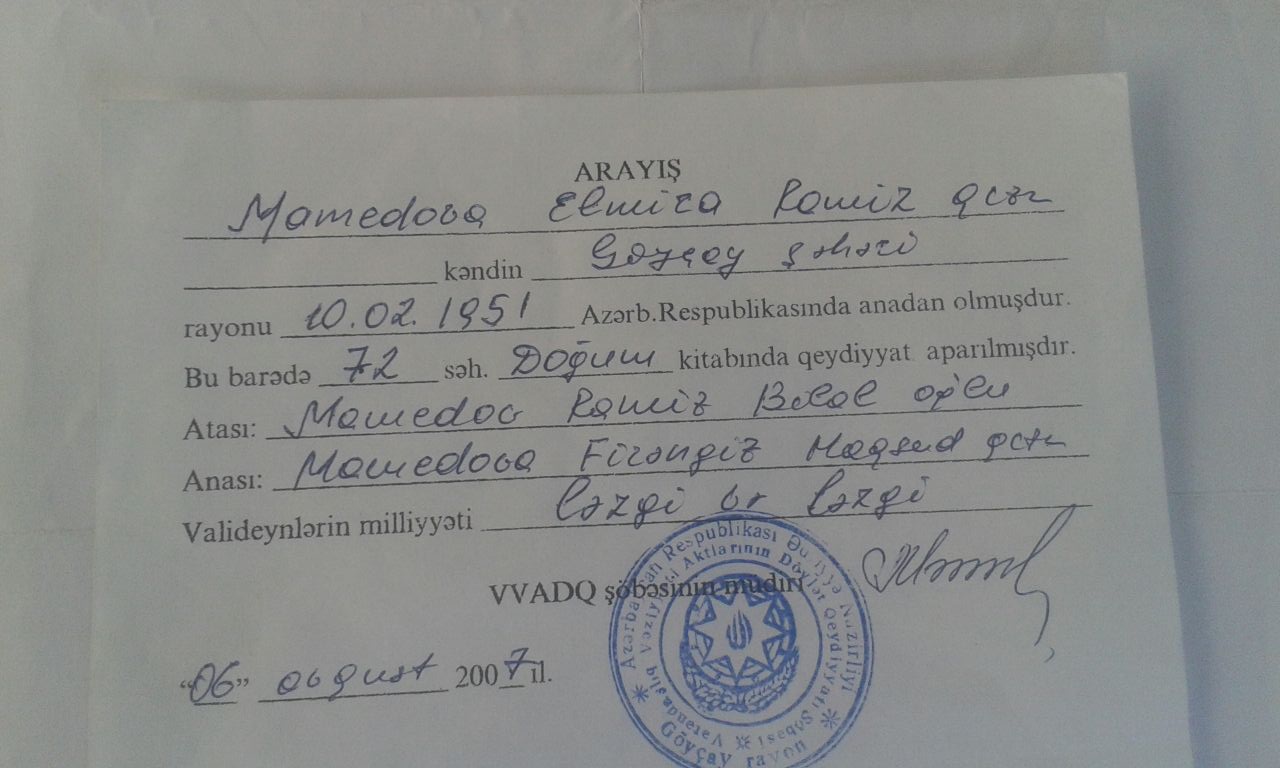 ARAYIŞ
Mamedova Elmira Ramiz qızı
kəndin Göyçay şəhəri
rayonu 10.02.1951 Azərb.Respublikasında anadan olmuşdur.
Bu barədə 72 səh. Doğum kitabında qeydiyyat aparılmışdır.
Atası: Mamedov Ramiz Bilal oğlu
Anası: Mamedova Firəngiz Maqsud qızı
Valideynlərin milliyyəti ləzgi və ləzgi
VVADQ şöbəsinin müdiri
"06" avqust 2007 il.
Azərbaycan Respublikası Ədliyyə Nazirliyi
Göyçay rayon
Vətəndaşlıq Vəziyyəti Aktlarının Dövlət Qeydiyyatı Şöbəsi